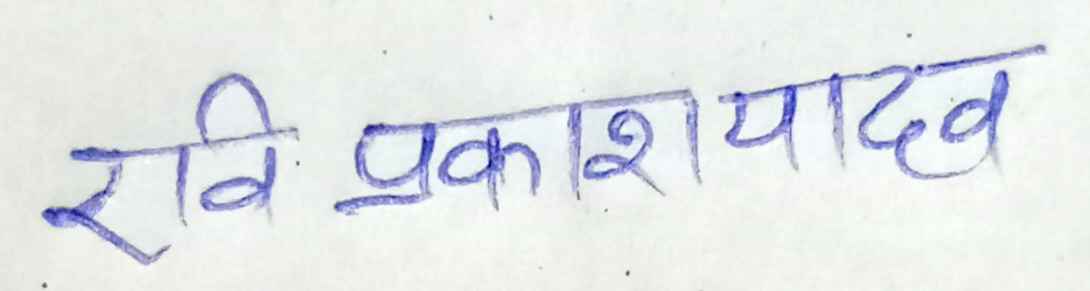 रवि प्रकाश यादव